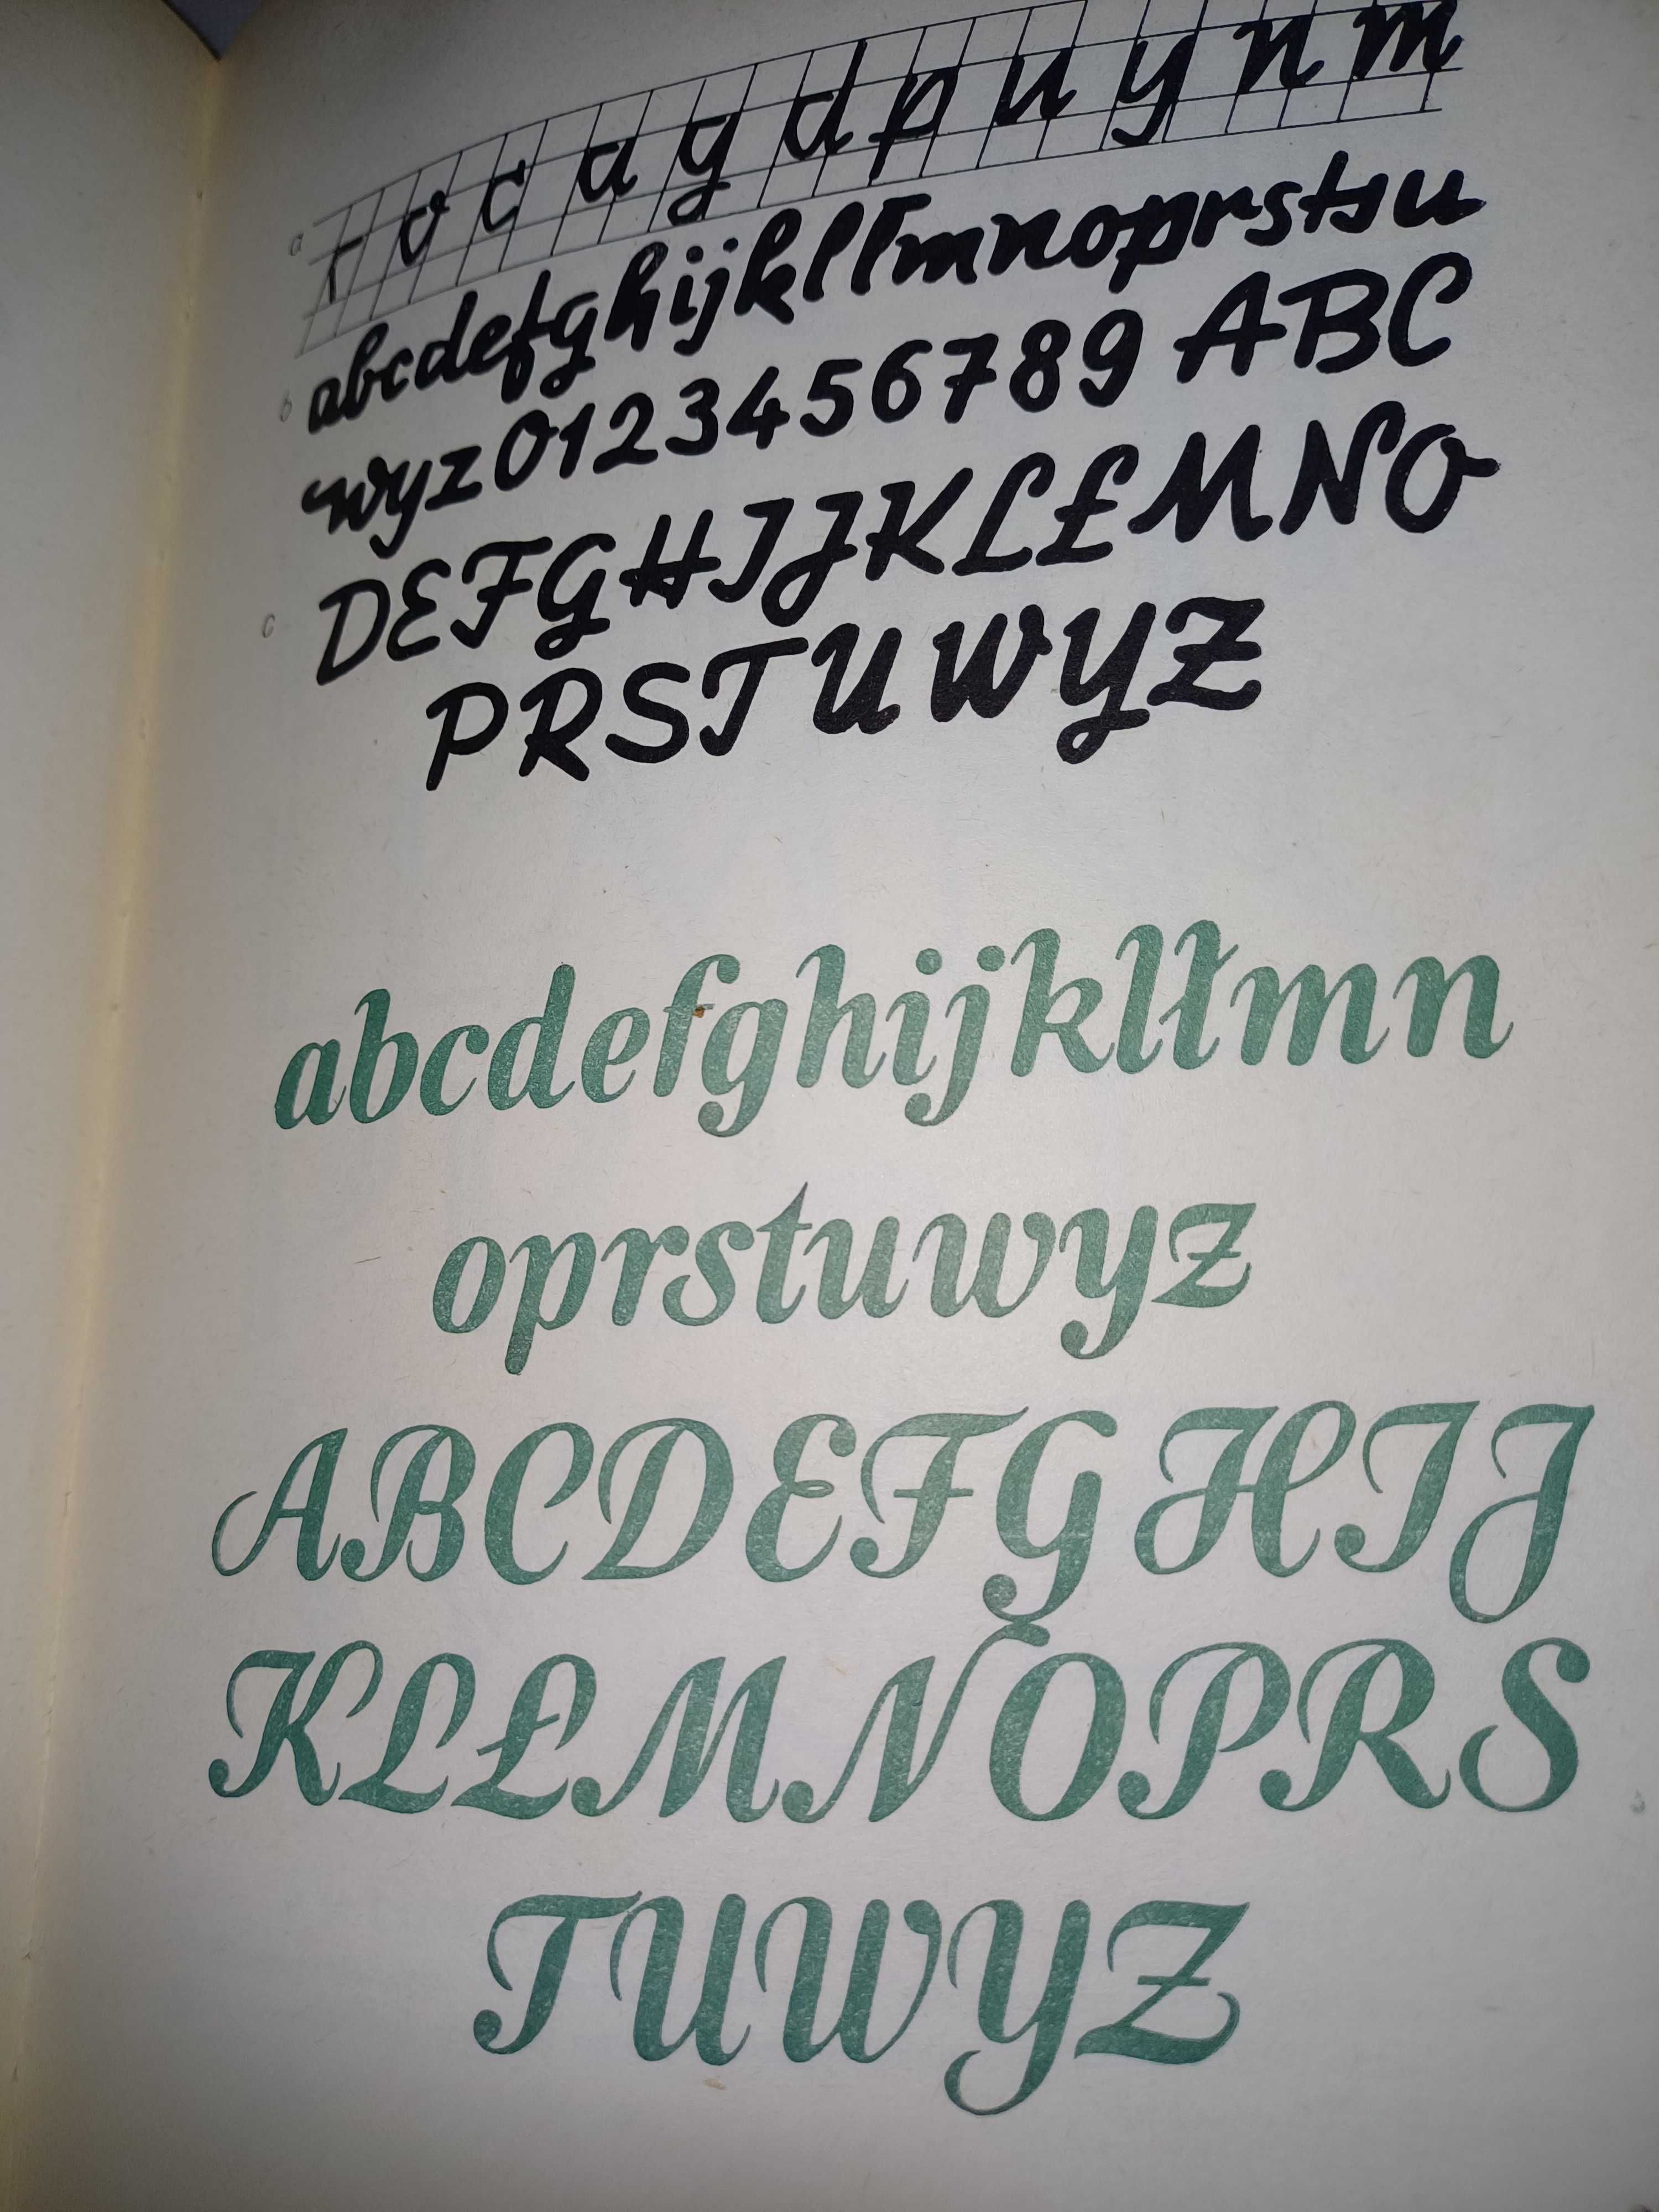 a r o c a g d p u y n m
b abcdefghijklłmnoprstsu
wyz 0123456789 ABC
c DEFGHIJKLŁMNO
PRSTUWYZ
abcdefghijklłmn
oprstuwyz
ABCDEFGHIJ
KLŁMNOPRS
TUWYZ